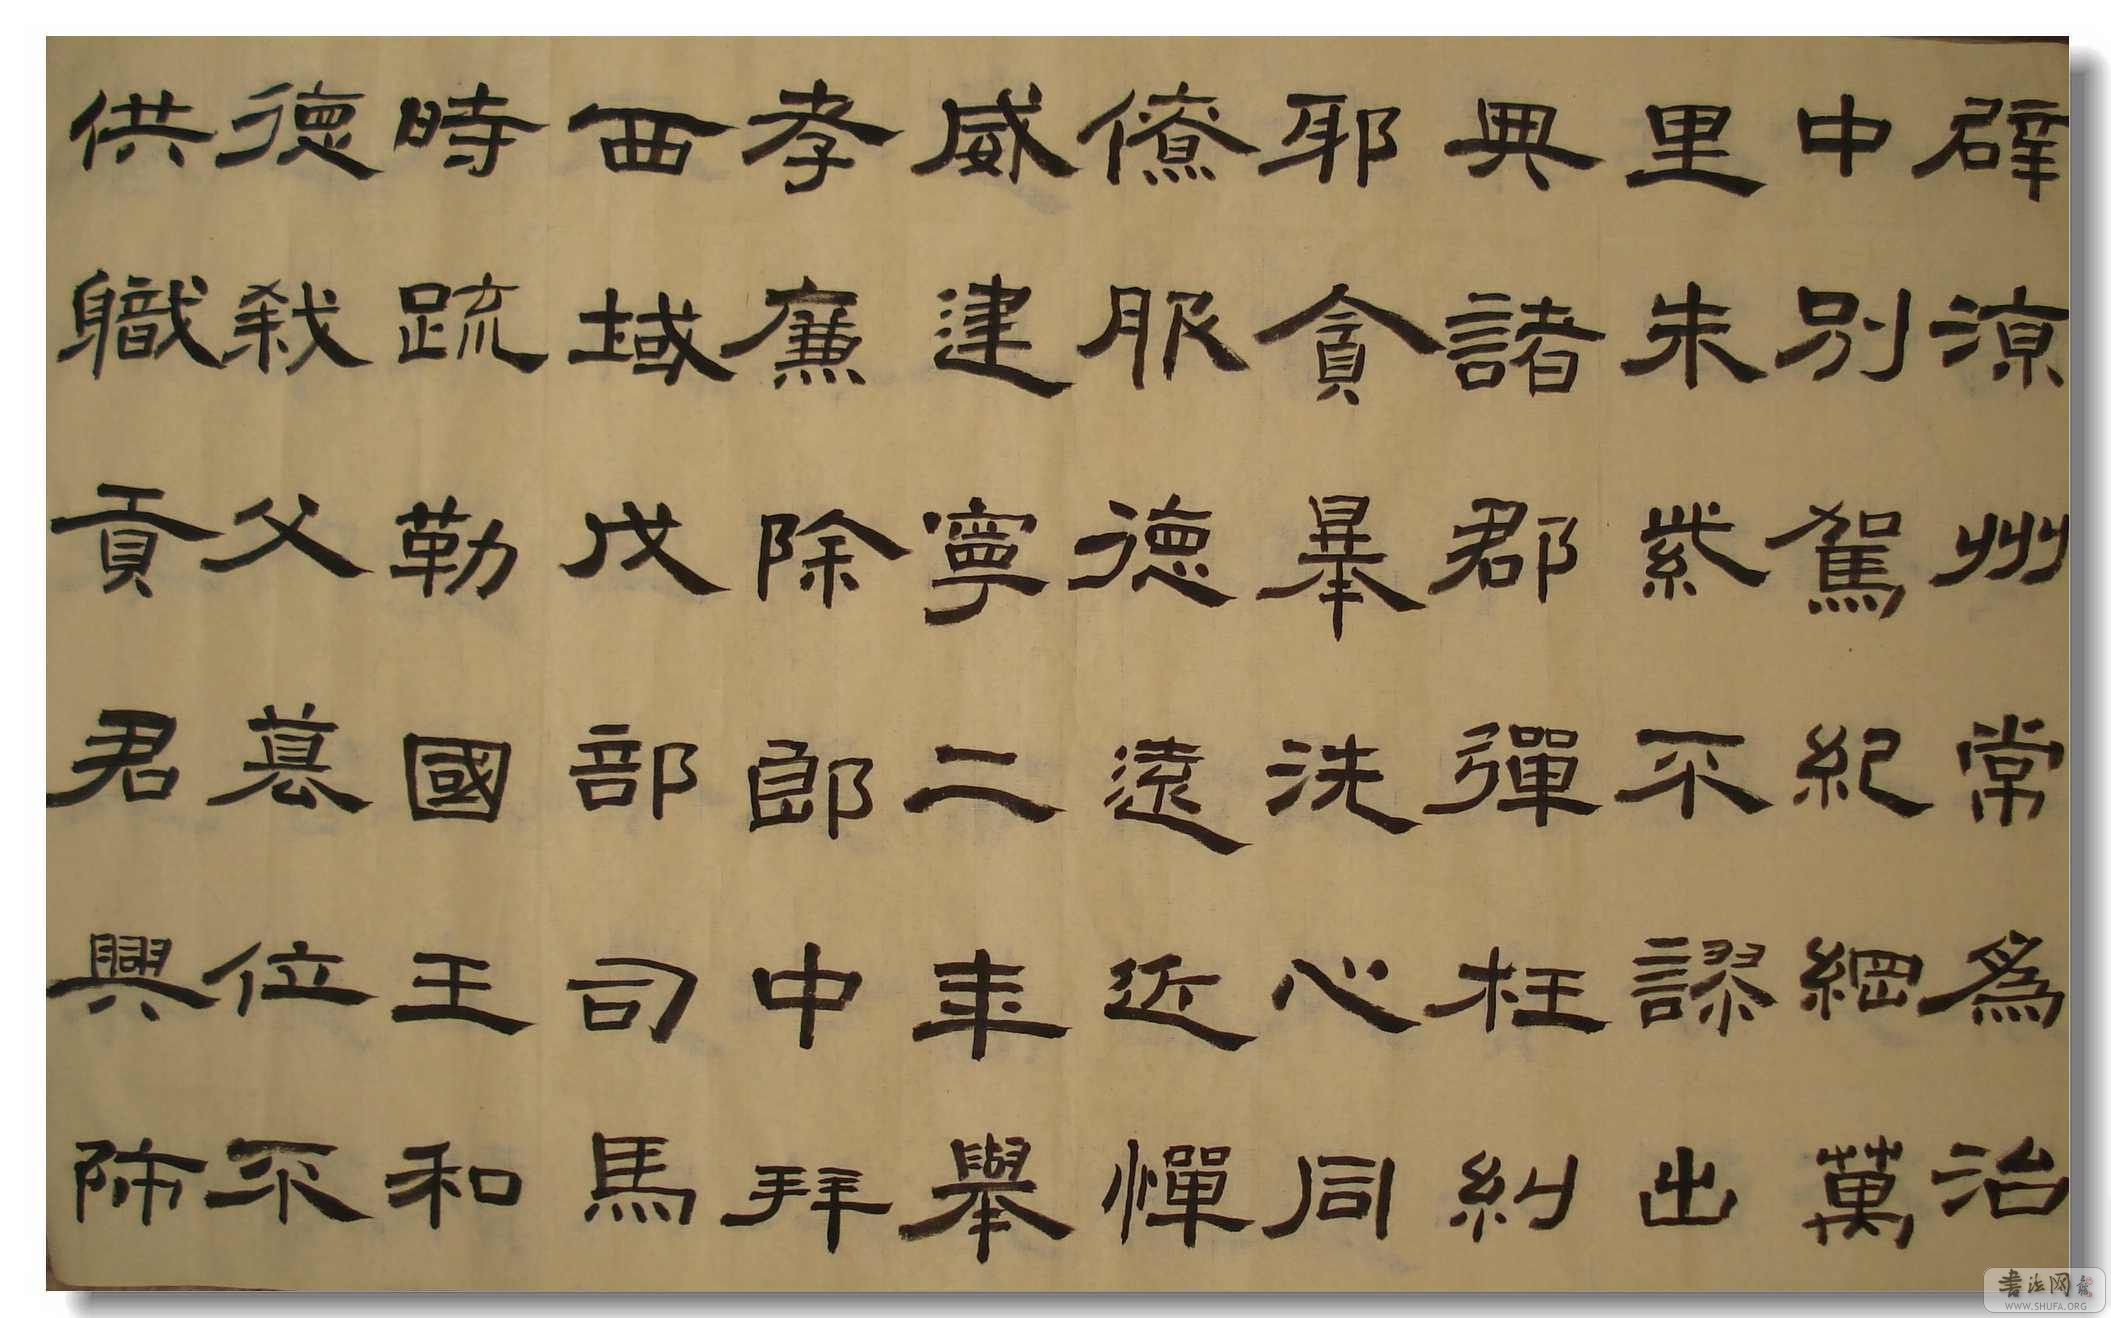 辟涼州常爲治
中別駕紀綱萬
里朱紫不謬出
典諸郡彈枉糾
邪貪暴洗心同
僚服德遠近憚
威建寧二年舉
孝廉除郎中拜
西域戊部司馬
時疏勒國王和
德弒父篡位不
供職貢君興師
书法网
WWW.SHUFA.ORG